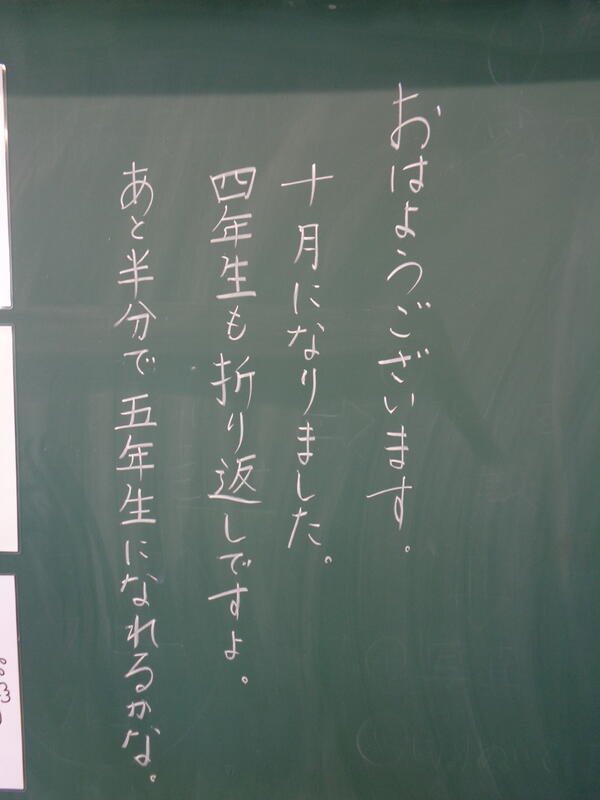 おはようございます。
十月になりました。
四年生も折り返しですよ。
あと半分で五年生になれるかな。